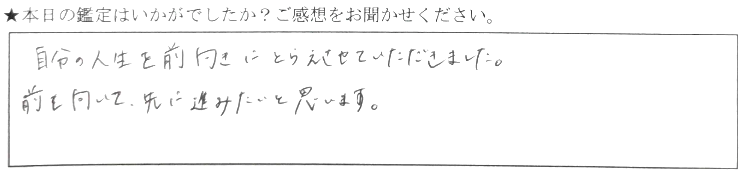 ★本日の鑑定はいかがでしたか？ご感想をお聞かせください。
自分の人生を前向きにとらえさせていただきました。
前を向いて、先に進みたいと思います。